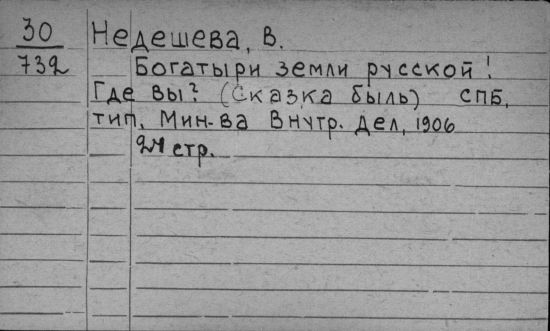 30 Недешева, В.
732 Богатыри земли русской!
Где вы? (Сказка быль) СПБ,
тип. Мин-ва Внутр. Дел, 1906
стр.